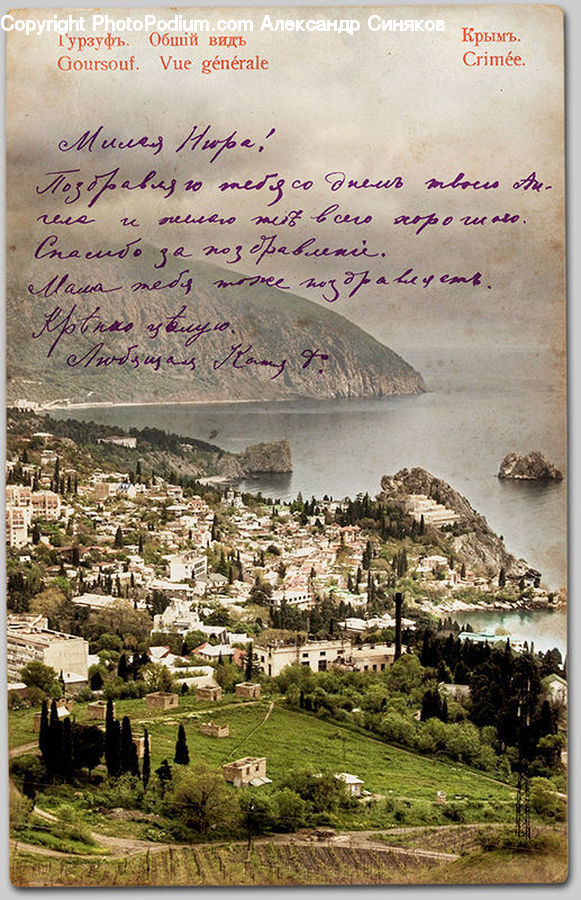 Copyright PhotoPodium.com Александр Синяков
Гурзуфъ. Общій видъ Крымъ.
Goursouf. Vue générale Crimée.
Милая Нюра!
Поздравляю тебя со днемъ твоего Ан-
гела и желаю тебѣ всего хорошаго.
Спасибо за поздравленіе.
Мама тебя тоже поздравляетъ.
Крѣпко цѣлую.
Любящая Катя